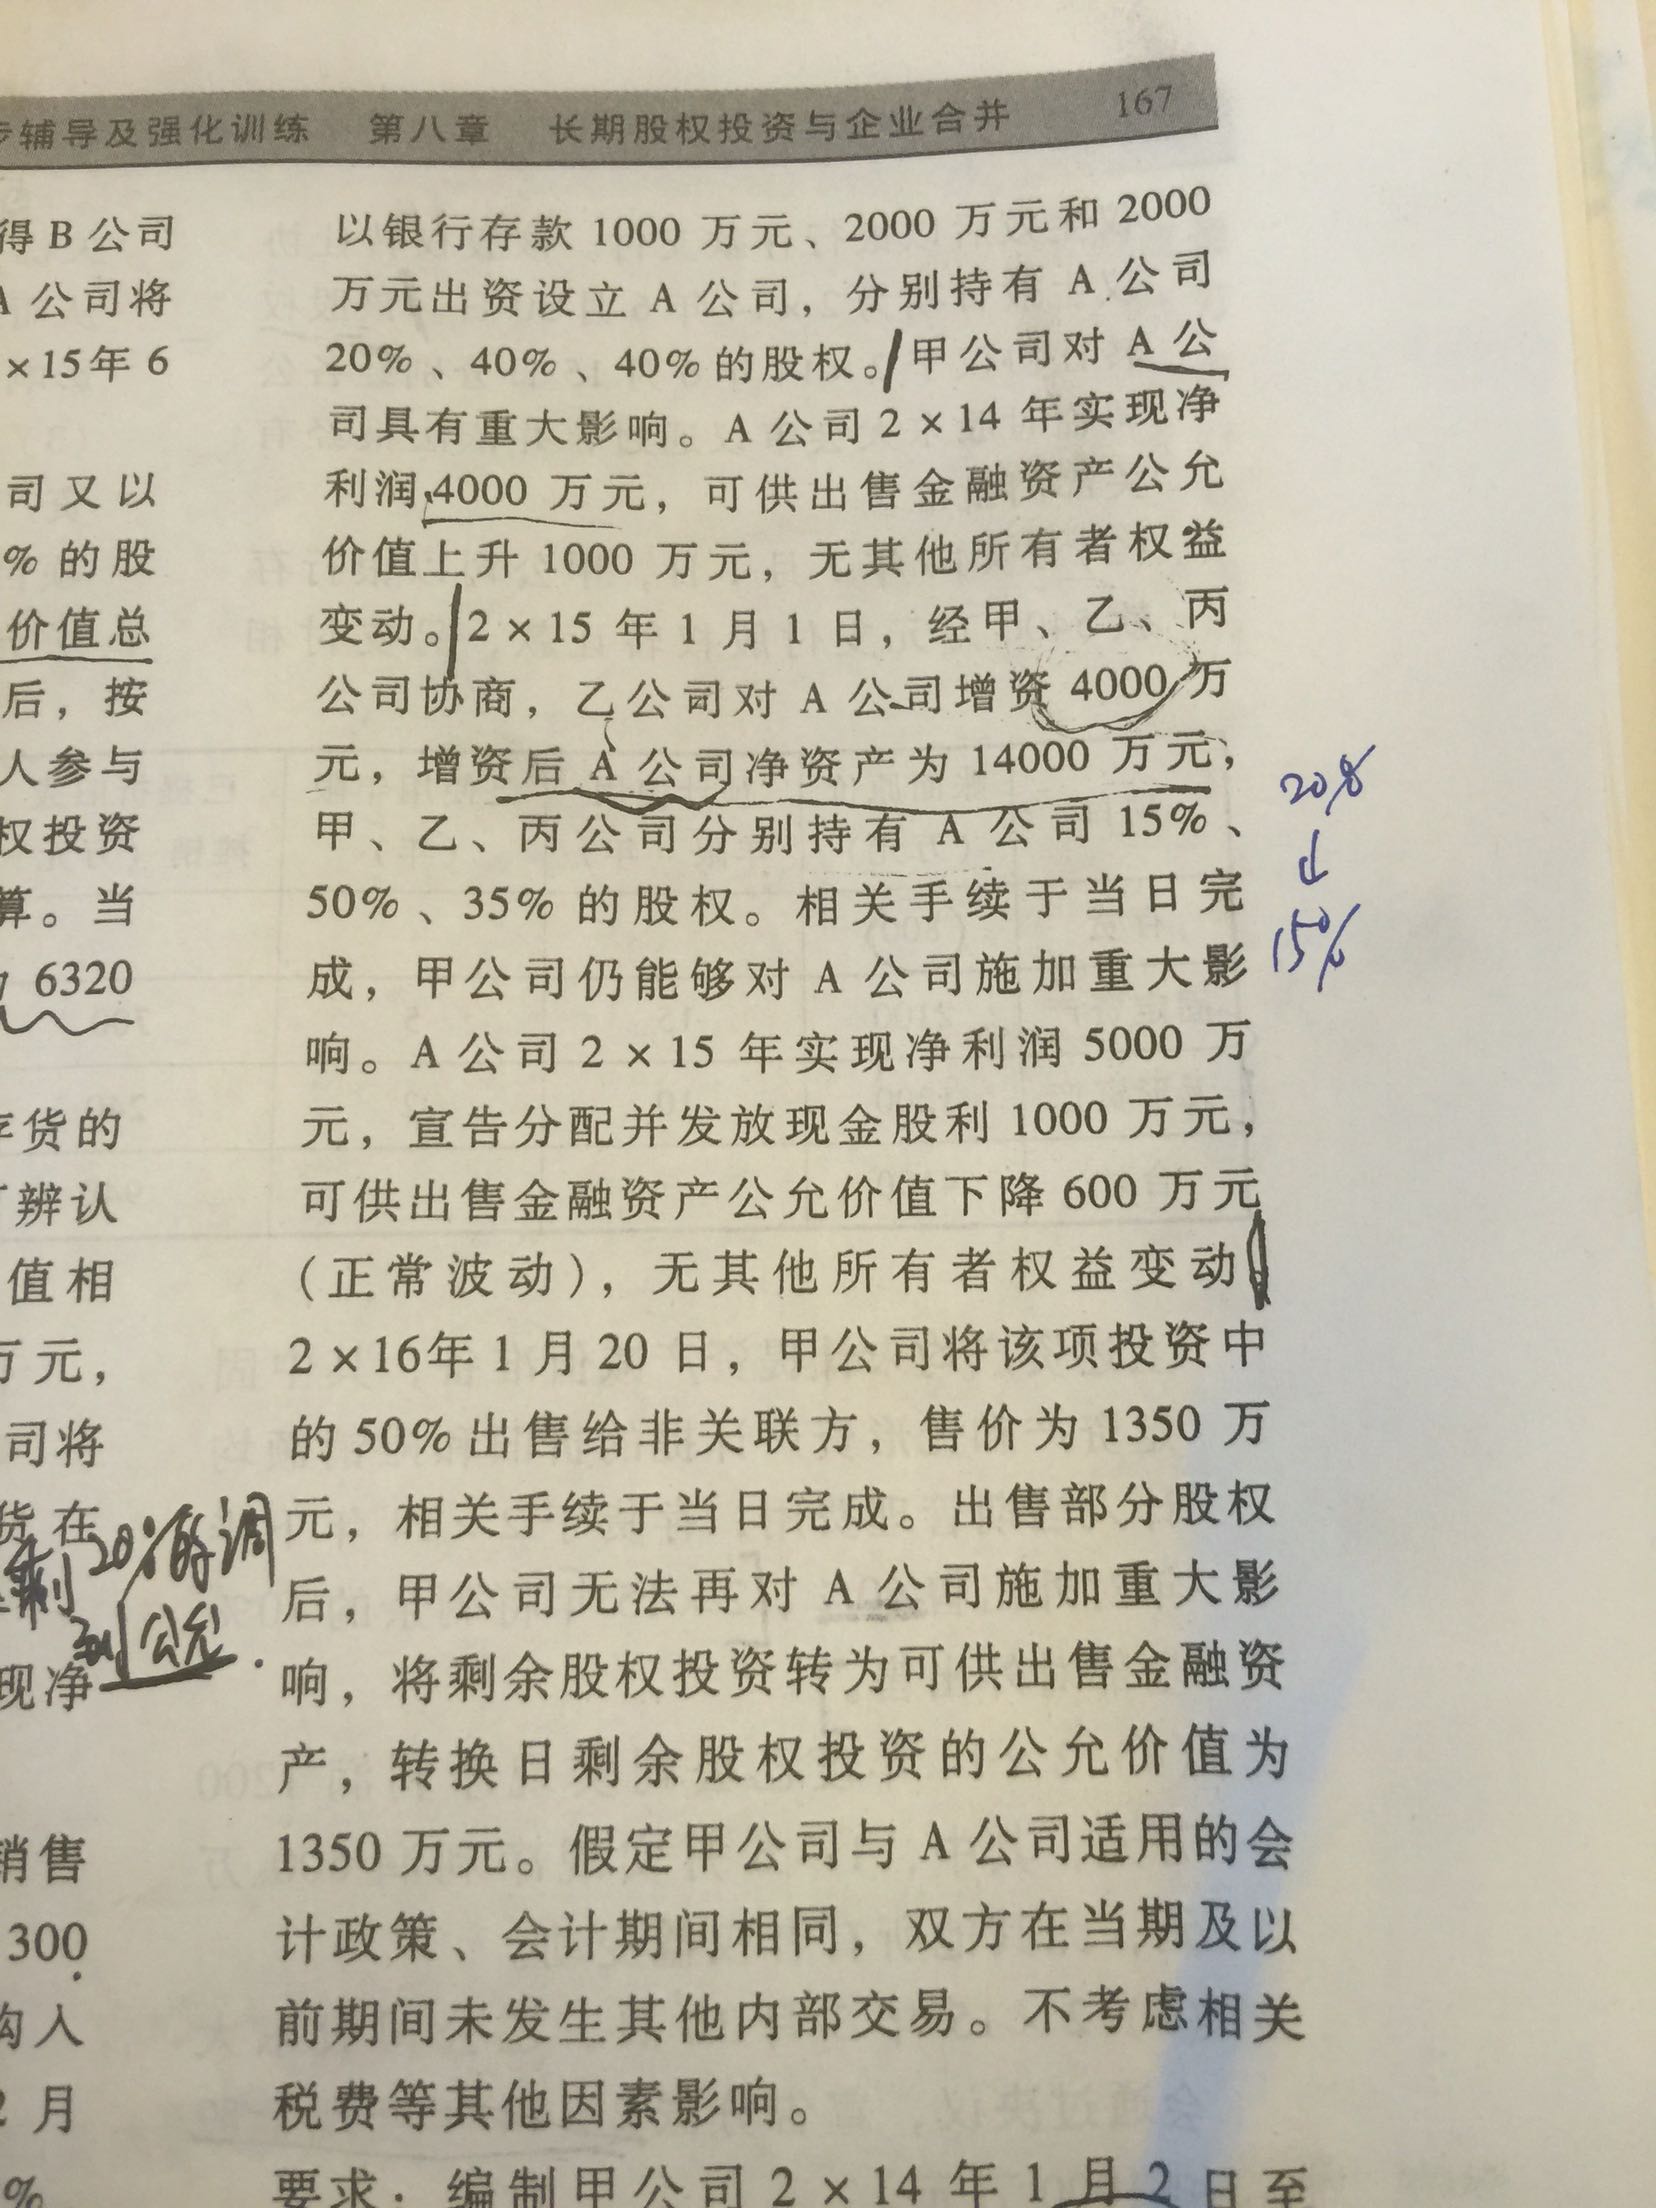 步辅导及强化训练 第八章 长期股权投资与企业合并 167
得 B 公司
A 公司将
×15年 6
司又以
% 的股
价值总
后，按
人参与
权投资
算。当
6320
存货的
辨认
值相
万元，
司将
货在
剩20%的调
到公允.
现净
销售
300
购入
2 月
%
以银行存款 1000 万元、2000 万元和 2000
万元出资设立 A 公司，分别持有 A 公司
20%、40%、40%的股权。甲公司对 A 公
司具有重大影响。A 公司 2×14 年实现净
利润 4000 万元，可供出售金融资产公允
价值上升 1000 万元，无其他所有者权益
变动。2×15 年 1 月 1 日，经甲、乙、丙
公司协商，乙公司对 A 公司增资 4000 万
元，增资后 A 公司净资产为 14000 万元，
甲、乙、丙公司分别持有 A 公司 15%、
50%、35%的股权。相关手续于当日完
成，甲公司仍能够对 A 公司施加重大影
响。A 公司 2×15 年实现净利润 5000 万
元，宣告分配并发放现金股利 1000 万元，
可供出售金融资产公允价值下降 600 万元
（正常波动），无其他所有者权益变动
2×16年 1 月 20 日，甲公司将该项投资中
的 50%出售给非关联方，售价为 1350 万
元，相关手续于当日完成。出售部分股权
后，甲公司无法再对 A 公司施加重大影
响，将剩余股权投资转为可供出售金融资
产，转换日剩余股权投资的公允价值为
1350 万元。假定甲公司与 A 公司适用的会
计政策、会计期间相同，双方在当期及以
前期间未发生其他内部交易。不考虑相关
税费等其他因素影响。
要求：编制甲公司 2×14 年 1 月 2 日至
20%
↓
15%